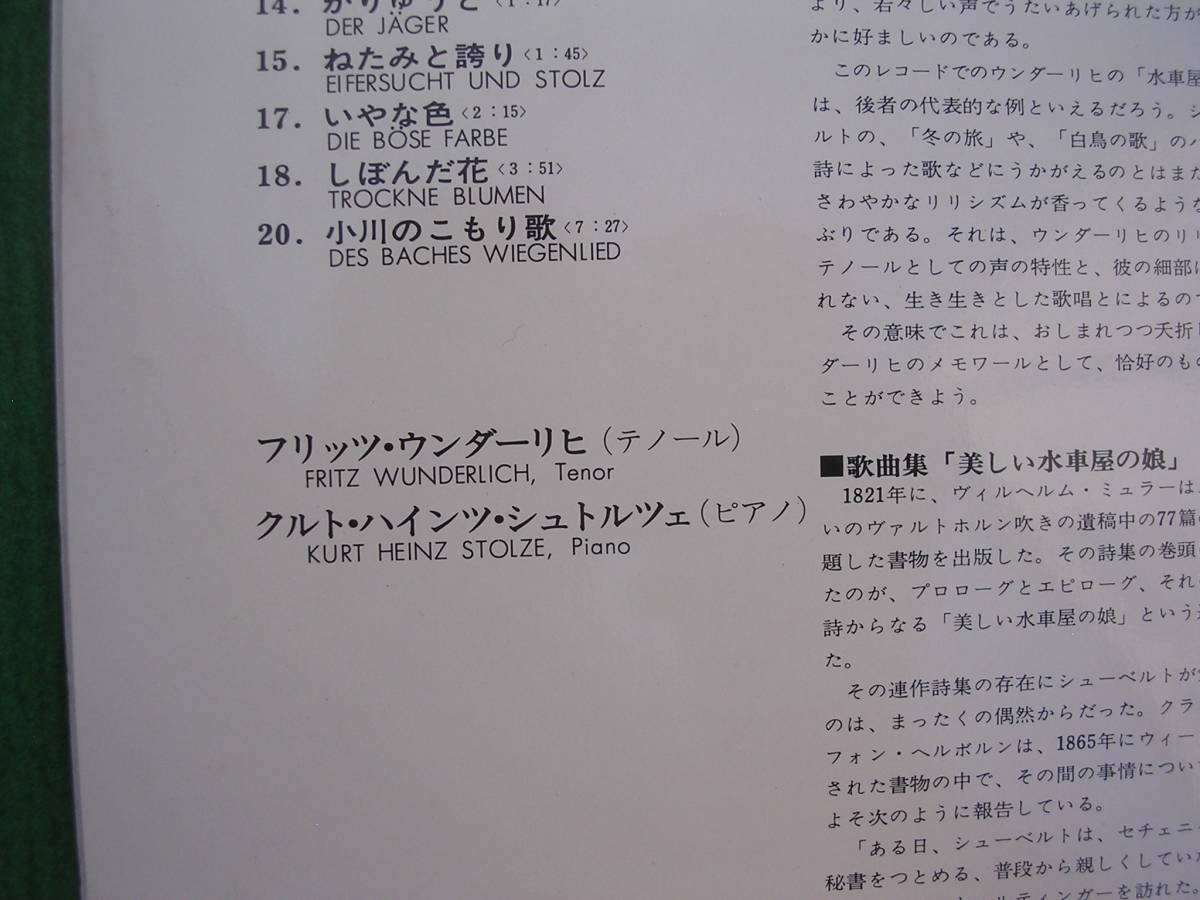 14. かりゅうど〈1:17〉
DER JÄGER
15. ねたみと誇り〈1:45〉
EIFERSUCHT UND STOLZ
17. いやな色〈2:15〉
DIE BÖSE FARBE
18. しぼんだ花〈3:51〉
TROCKNE BLUMEN
20. 小川のこもり歌〈7:27〉
DES BACHES WIEGENLIED
フリッツ・ウンダーリヒ(テノール)
FRITZ WUNDERLICH, Tenor
クルト・ハインツ・シュトルツェ(ピアノ)
KURT HEINZ STOLZE, Piano
より、若々しい声でうたいあげられた方が
かに好ましいのである。
このレコードでのウンダーリヒの「水車屋
は、後者の代表的な例といえるだろう。シ
ルトの、「冬の旅」や、「白鳥の歌」のハ
詩によった歌などにうかがえるのとはまた
さわやかなリリシズムが香ってくるような
ぶりである。それは、ウンダーリヒのリリ
テノールとしての声の特性と、彼の細部に
れない、生き生きとした歌唱とによるので
その意味でこれは、おしまれつつ夭折し
ダーリヒのメモワールとして、恰好のもの
ことができよう。
■歌曲集「美しい水車屋の娘」
1821年に、ヴィルヘルム・ミュラーは、
いのヴァルトホルン吹きの遺稿中の77篇の
題した書物を出版した。その詩集の巻頭
たのが、プロローグとエピローグ、それ
詩からなる「美しい水車屋の娘」という
た。
その連作詩集の存在にシューベルトが
のは、まったくの偶然からだった。クラ
フォン・ヘルボルンは、1865年にウィー
された書物の中で、その間の事情につい
よそ次のように報告している。
「ある日、シューベルトは、セチェニ
秘書をつとめる、普段から親しくしてい
ルティンガーを訪れた。